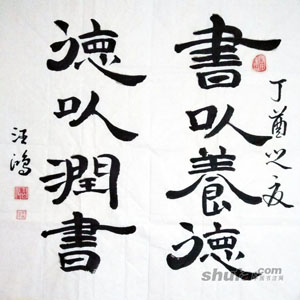 丁酉之夏
書以養德
德以潤書
汪鴻